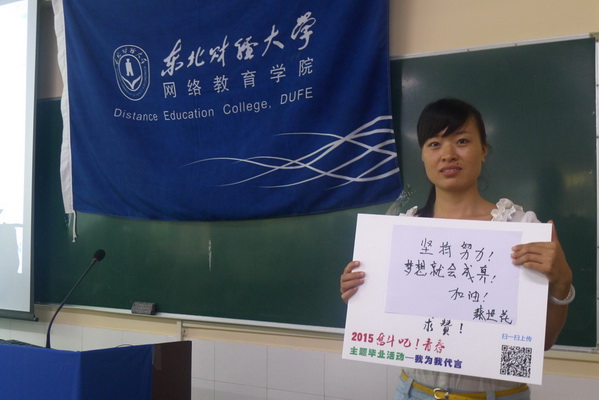 东北财经大学
网络教育学院
Distance Education College, DUFE
坚持努力！
梦想就会成真！
加油！
求赞！
扫一扫上传
2015奋斗吧！青春
主题毕业活动—我为我代言